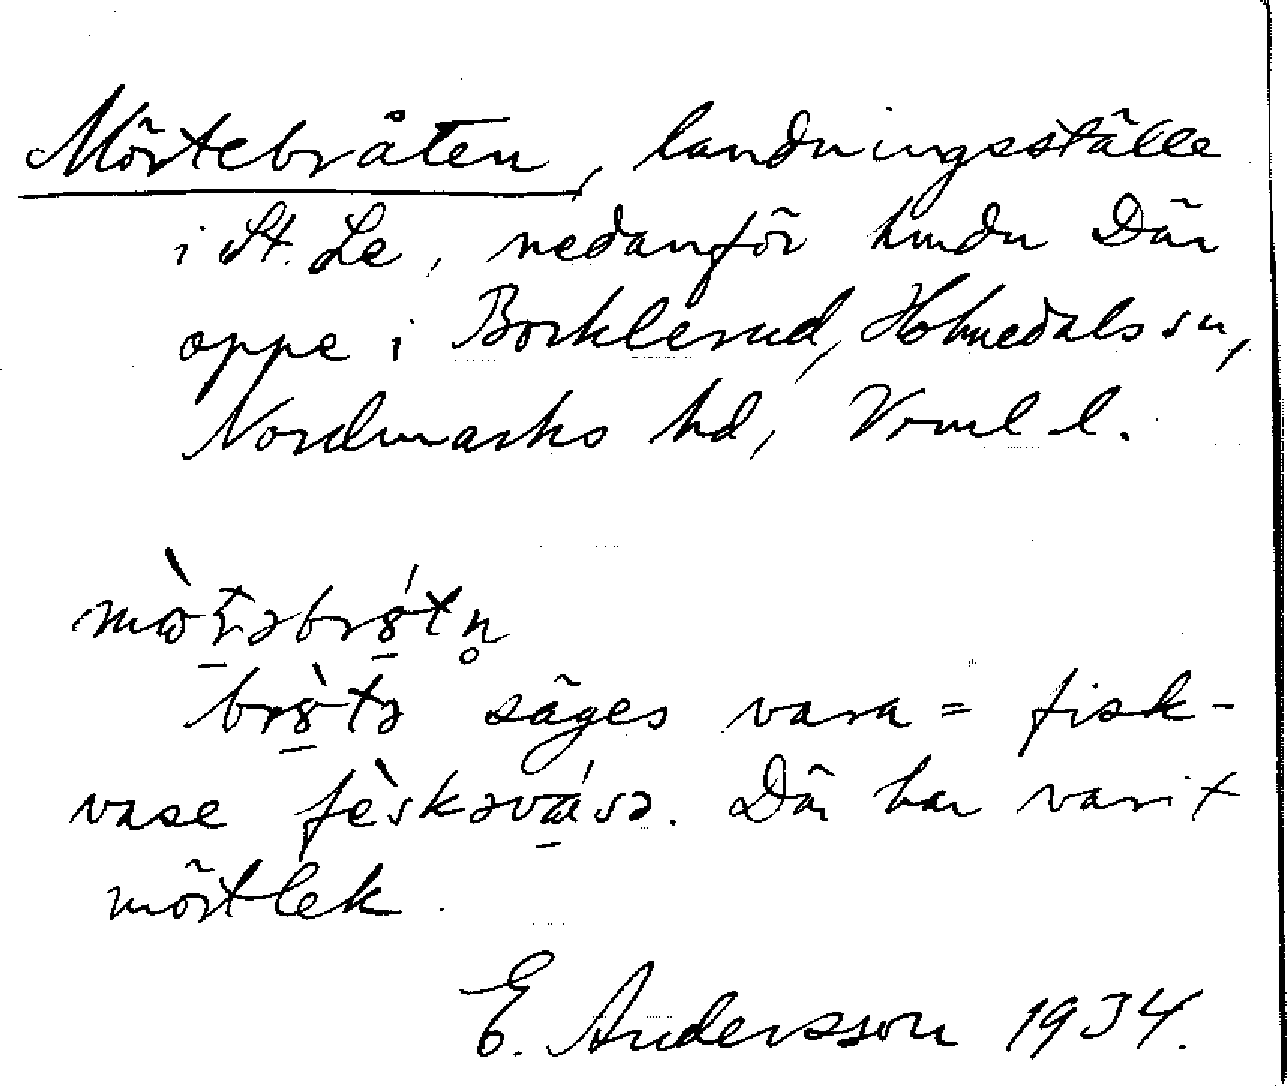 Mörtebråten, landningsställe
i St. Le, nedanför hmdn Där
oppe i Borklerud, Holmedals sn,
Nordmarks hd, Vrml l.
säges vara = fisk-
vase fèskəvásə. Där har varit
mörtlek.
E. Andersson 1934.